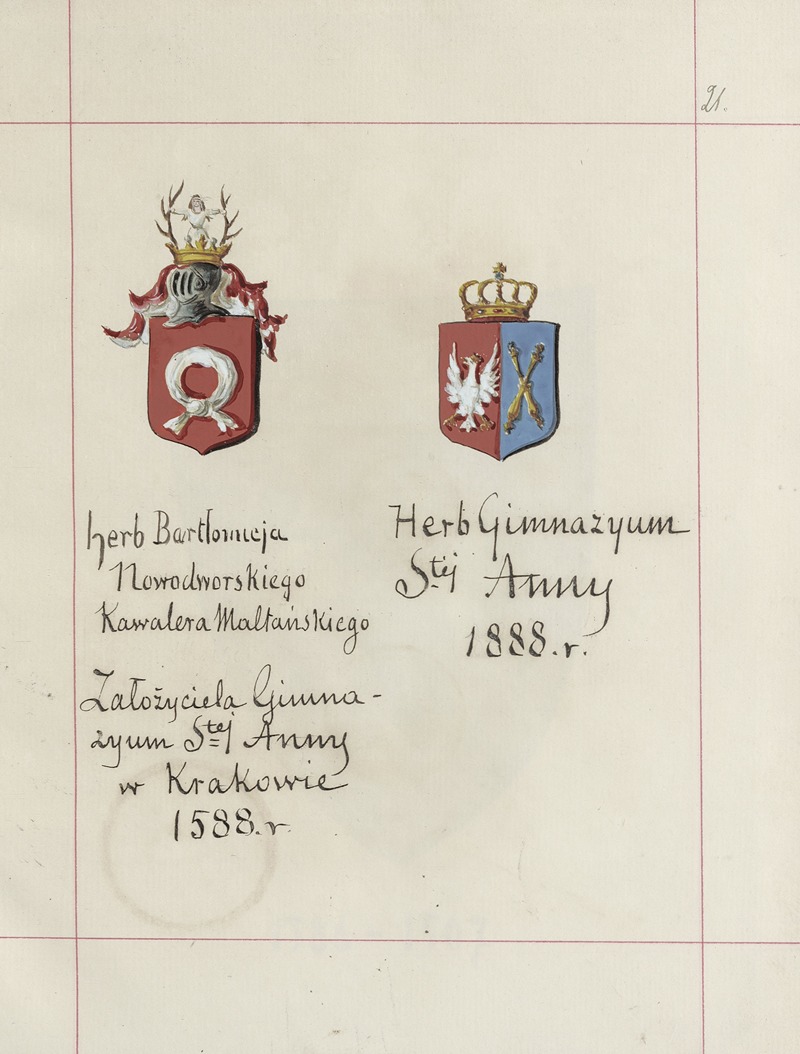 21.
herb Bartłomieja
Nowodworskiego
Kawalera Maltańskiego
Założyciela Gimna-
zyum Stej Anny
w Krakowie
1588.r.
Herb Gimnazyum
Stéj Anny
1888.r.